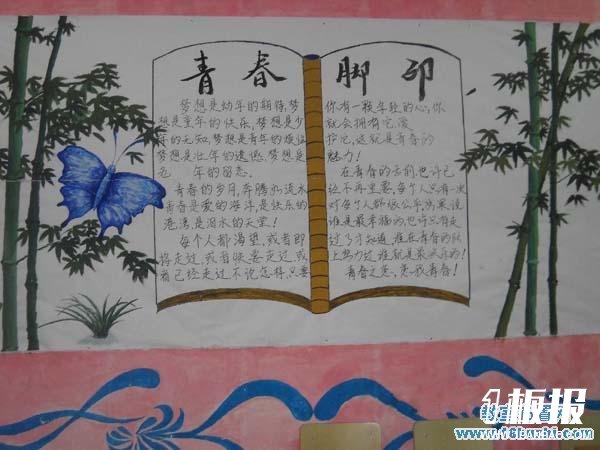 青春脚印
梦想是幼年的期待,梦
想是童年的快乐,梦想是少
年的无知,梦想是青年的
梦想是壮年的遗憾,梦想是
老 年的留恋。
青春的岁月,奔腾的流水
青春是爱的海洋是快乐的
港湾,是泪水的天堂!
每个人都渴望,或者即
将走过,或者快要走过,或
者已经走过不说怎样,只要
你有一颗年轻的心,你
就会拥有它,
护它,这就是青春的
魅力!
在青春的去前,也许已
经不再重要,每个人只有一次
对每个人都很公平,如果说
谁是最幸福的,也许只有走
过了才知道,谁在青春的
上努力过,谁就是最快乐的!
青春之美,美我青春!
板报